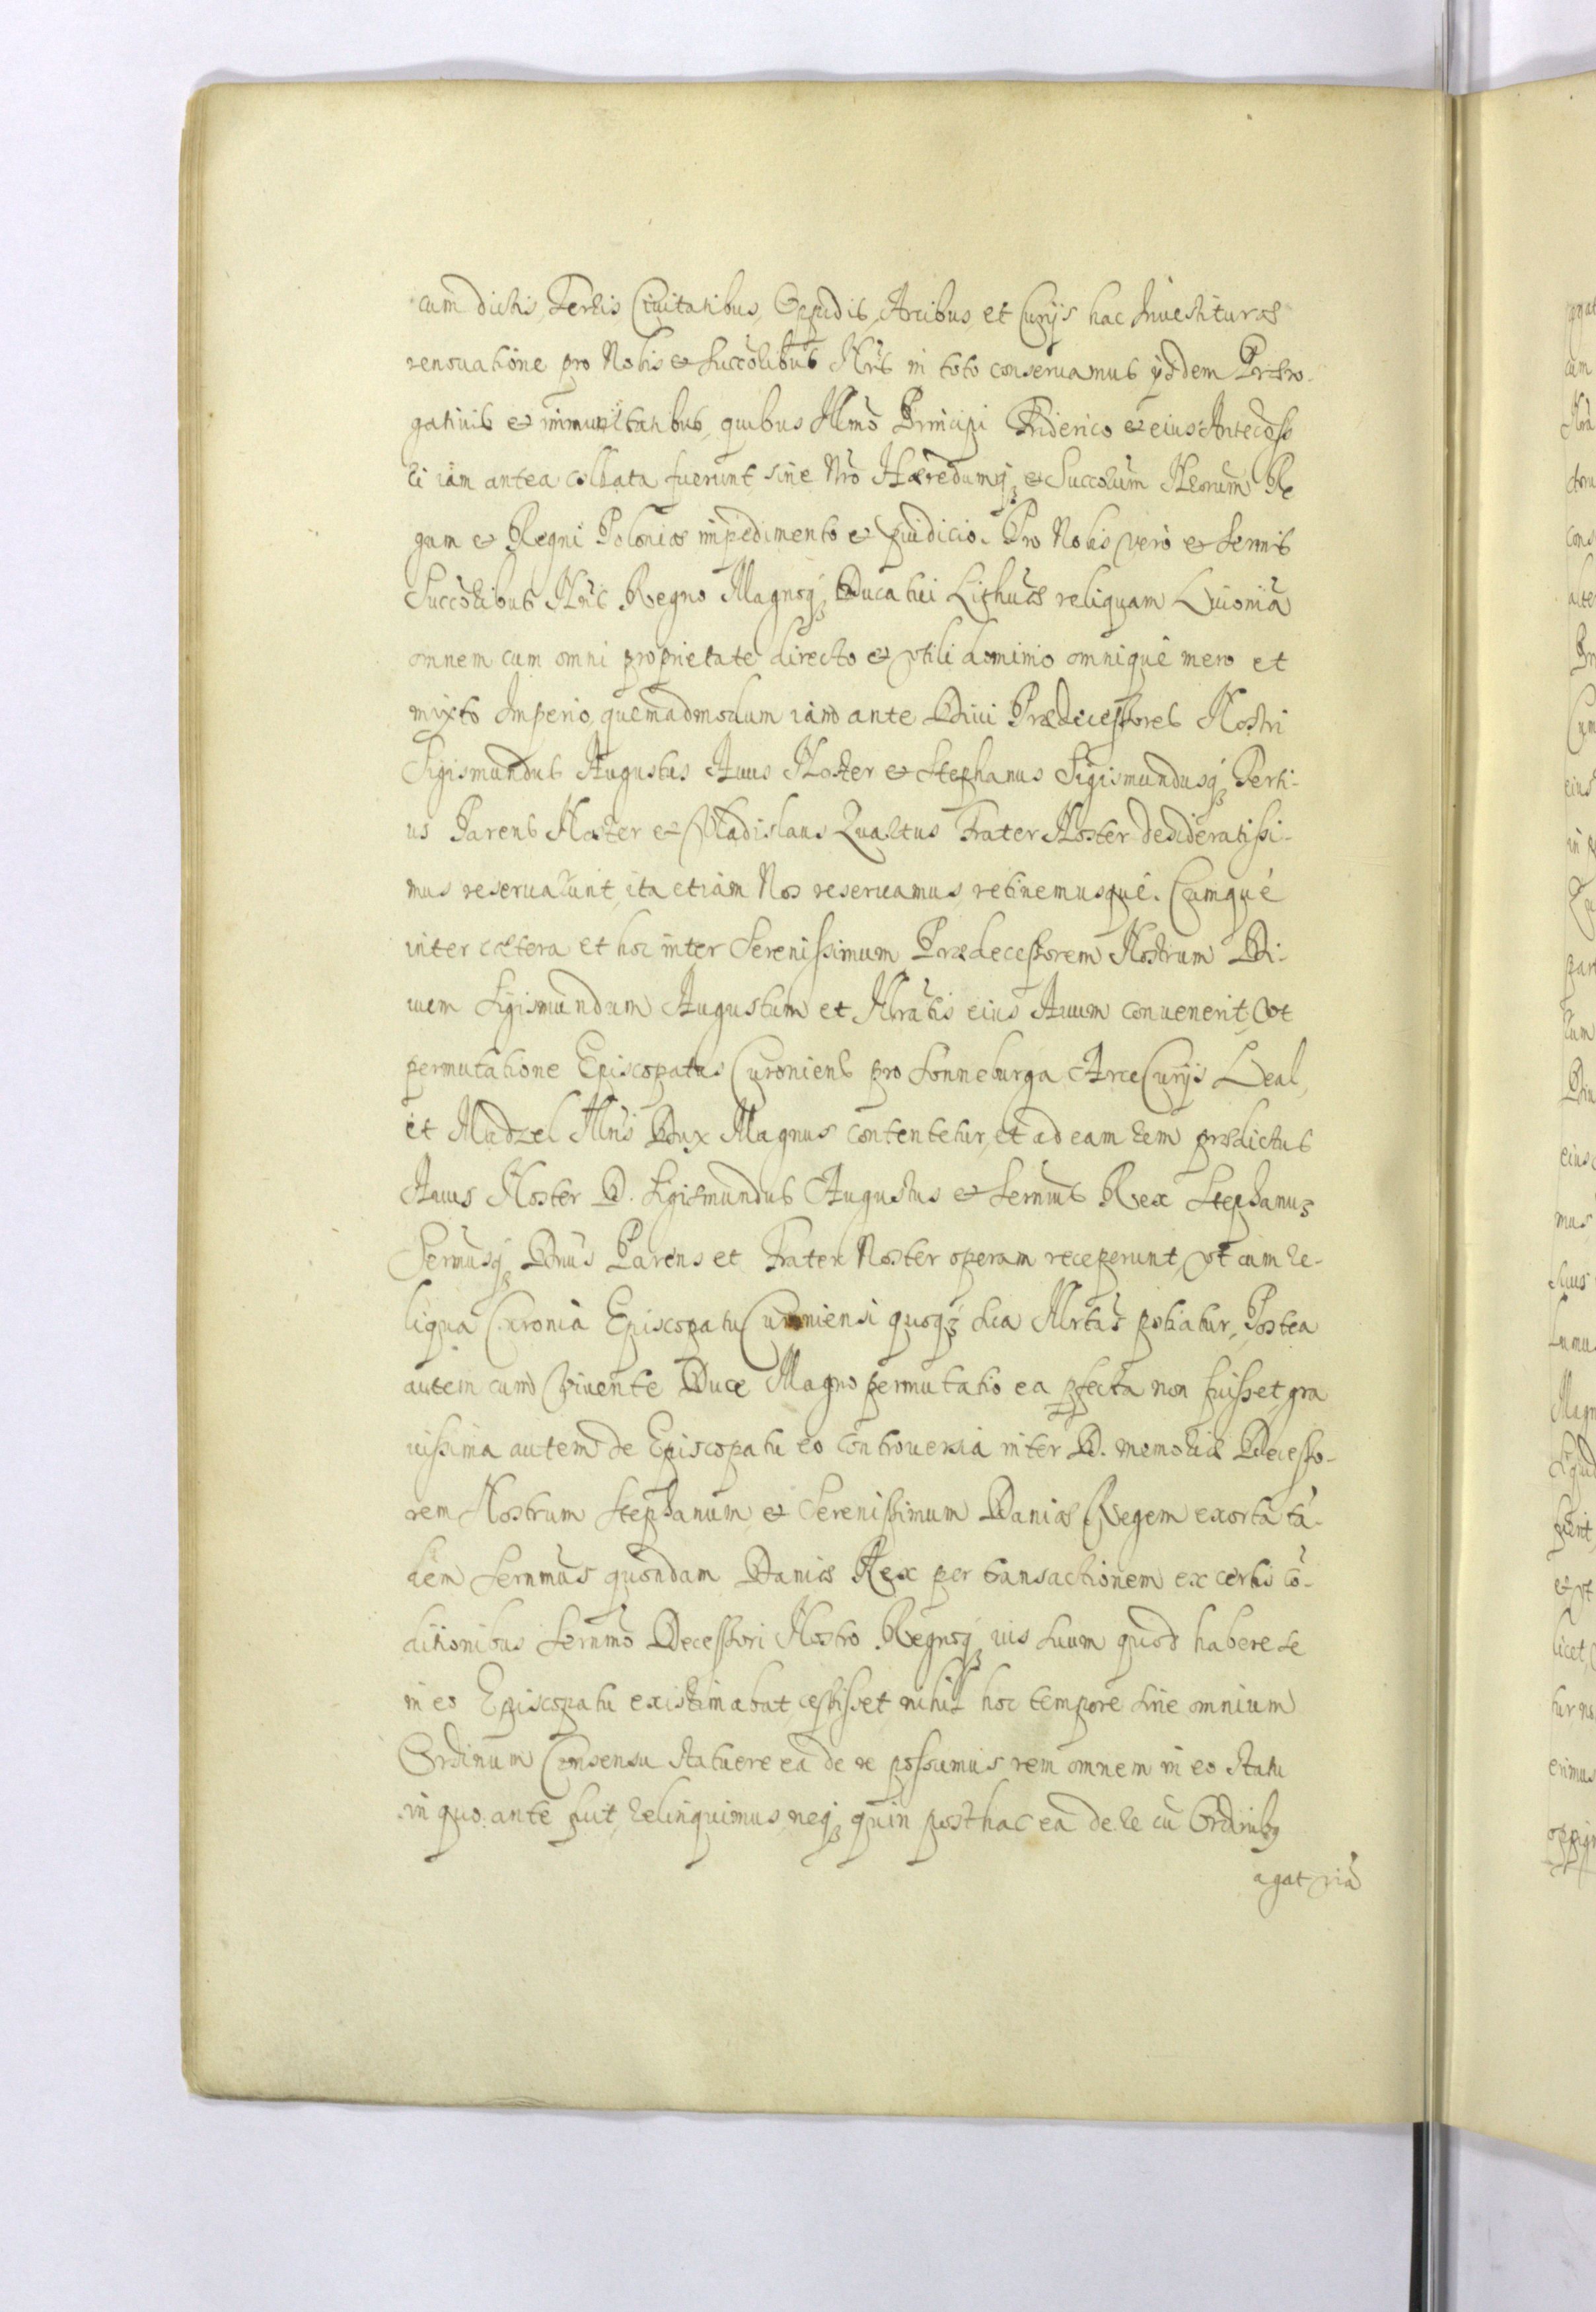 cum dictis Terris Civitatibus, Oppidis, Arcibus et Curijs hac Inuestituræ
renouatione pro Nobis & Succoribus Nris in toto conseruamus ijsdem Præro-
gatiuis & immunitatibus, quibus Illmo Principi Friderico & eius Antecesso
ri iam antea collata fuerunt sine Nro Hæredumq & Succorum Nrorum Re
gum & Regni Poloniæ impedimento & piudicio. Pro Nobis vero & Sermis
Succoribus Nris Regno Magnoq Ducatui Lithuæ reliquam Liuoniã
omnem cum omni proprietate directo & vtili dominio omnique mero et
mixto Imperio, quemadmodum iam ante Diui Prædecessores Nostri
Sigismundus Augustus Auus Noster & Stephanus Sigismundusq Terti-
us Parens Noster & Vladislaus Quartus Frater Noster desideratissi-
mus reseruarunt, ita etiam Nos reseruamus, retinemusque. Cumque
inter cætera et hoc inter Serenissimum Prædecessorem Nostrum Di-
uum Sigismundum Augustum et Illratis eius Auum conuenerit, Vt
permutatione Episcopatus Curoniens pro Sonneburga Arce Curijs Leal,
et Hadzel Illris Dux Magnus contentetur, et ad eam rem prædictus
Auus Noster D. Sigismundus Augustus & Sermus Rex Stephanus
Sermusq Dnus Parens et Frater Noster operam receperunt, vt cum re-
liqua Curonia Episcopatu Curoniensi quoq sua Illrtas potiatur, Postea
autem cum Viuente Duce Magno permutatio ea pfecta non fuisset, gra
uissima autem de Episcopatu eo controuersia inter D. memoriæ Decesso-
rem Nostrum Stephanum & Serenissimum Daniæ Regem exorta ta-
dem Sernmus quondam Daniæ Rex per transactionem ex certis cõ-
ditionibus Sernmo Decessori Nostro Regnoq ius suum quod habere se
in eo Episcopatu existimabat, cessisset nihil hoc tempore sine omnium
Ordinum Consensu statuere ea de re possumus rem omnem in eo statu
in quo ante fuit, relinquimus, neq quin posthac ea de re cũ Ordinibus
agat via